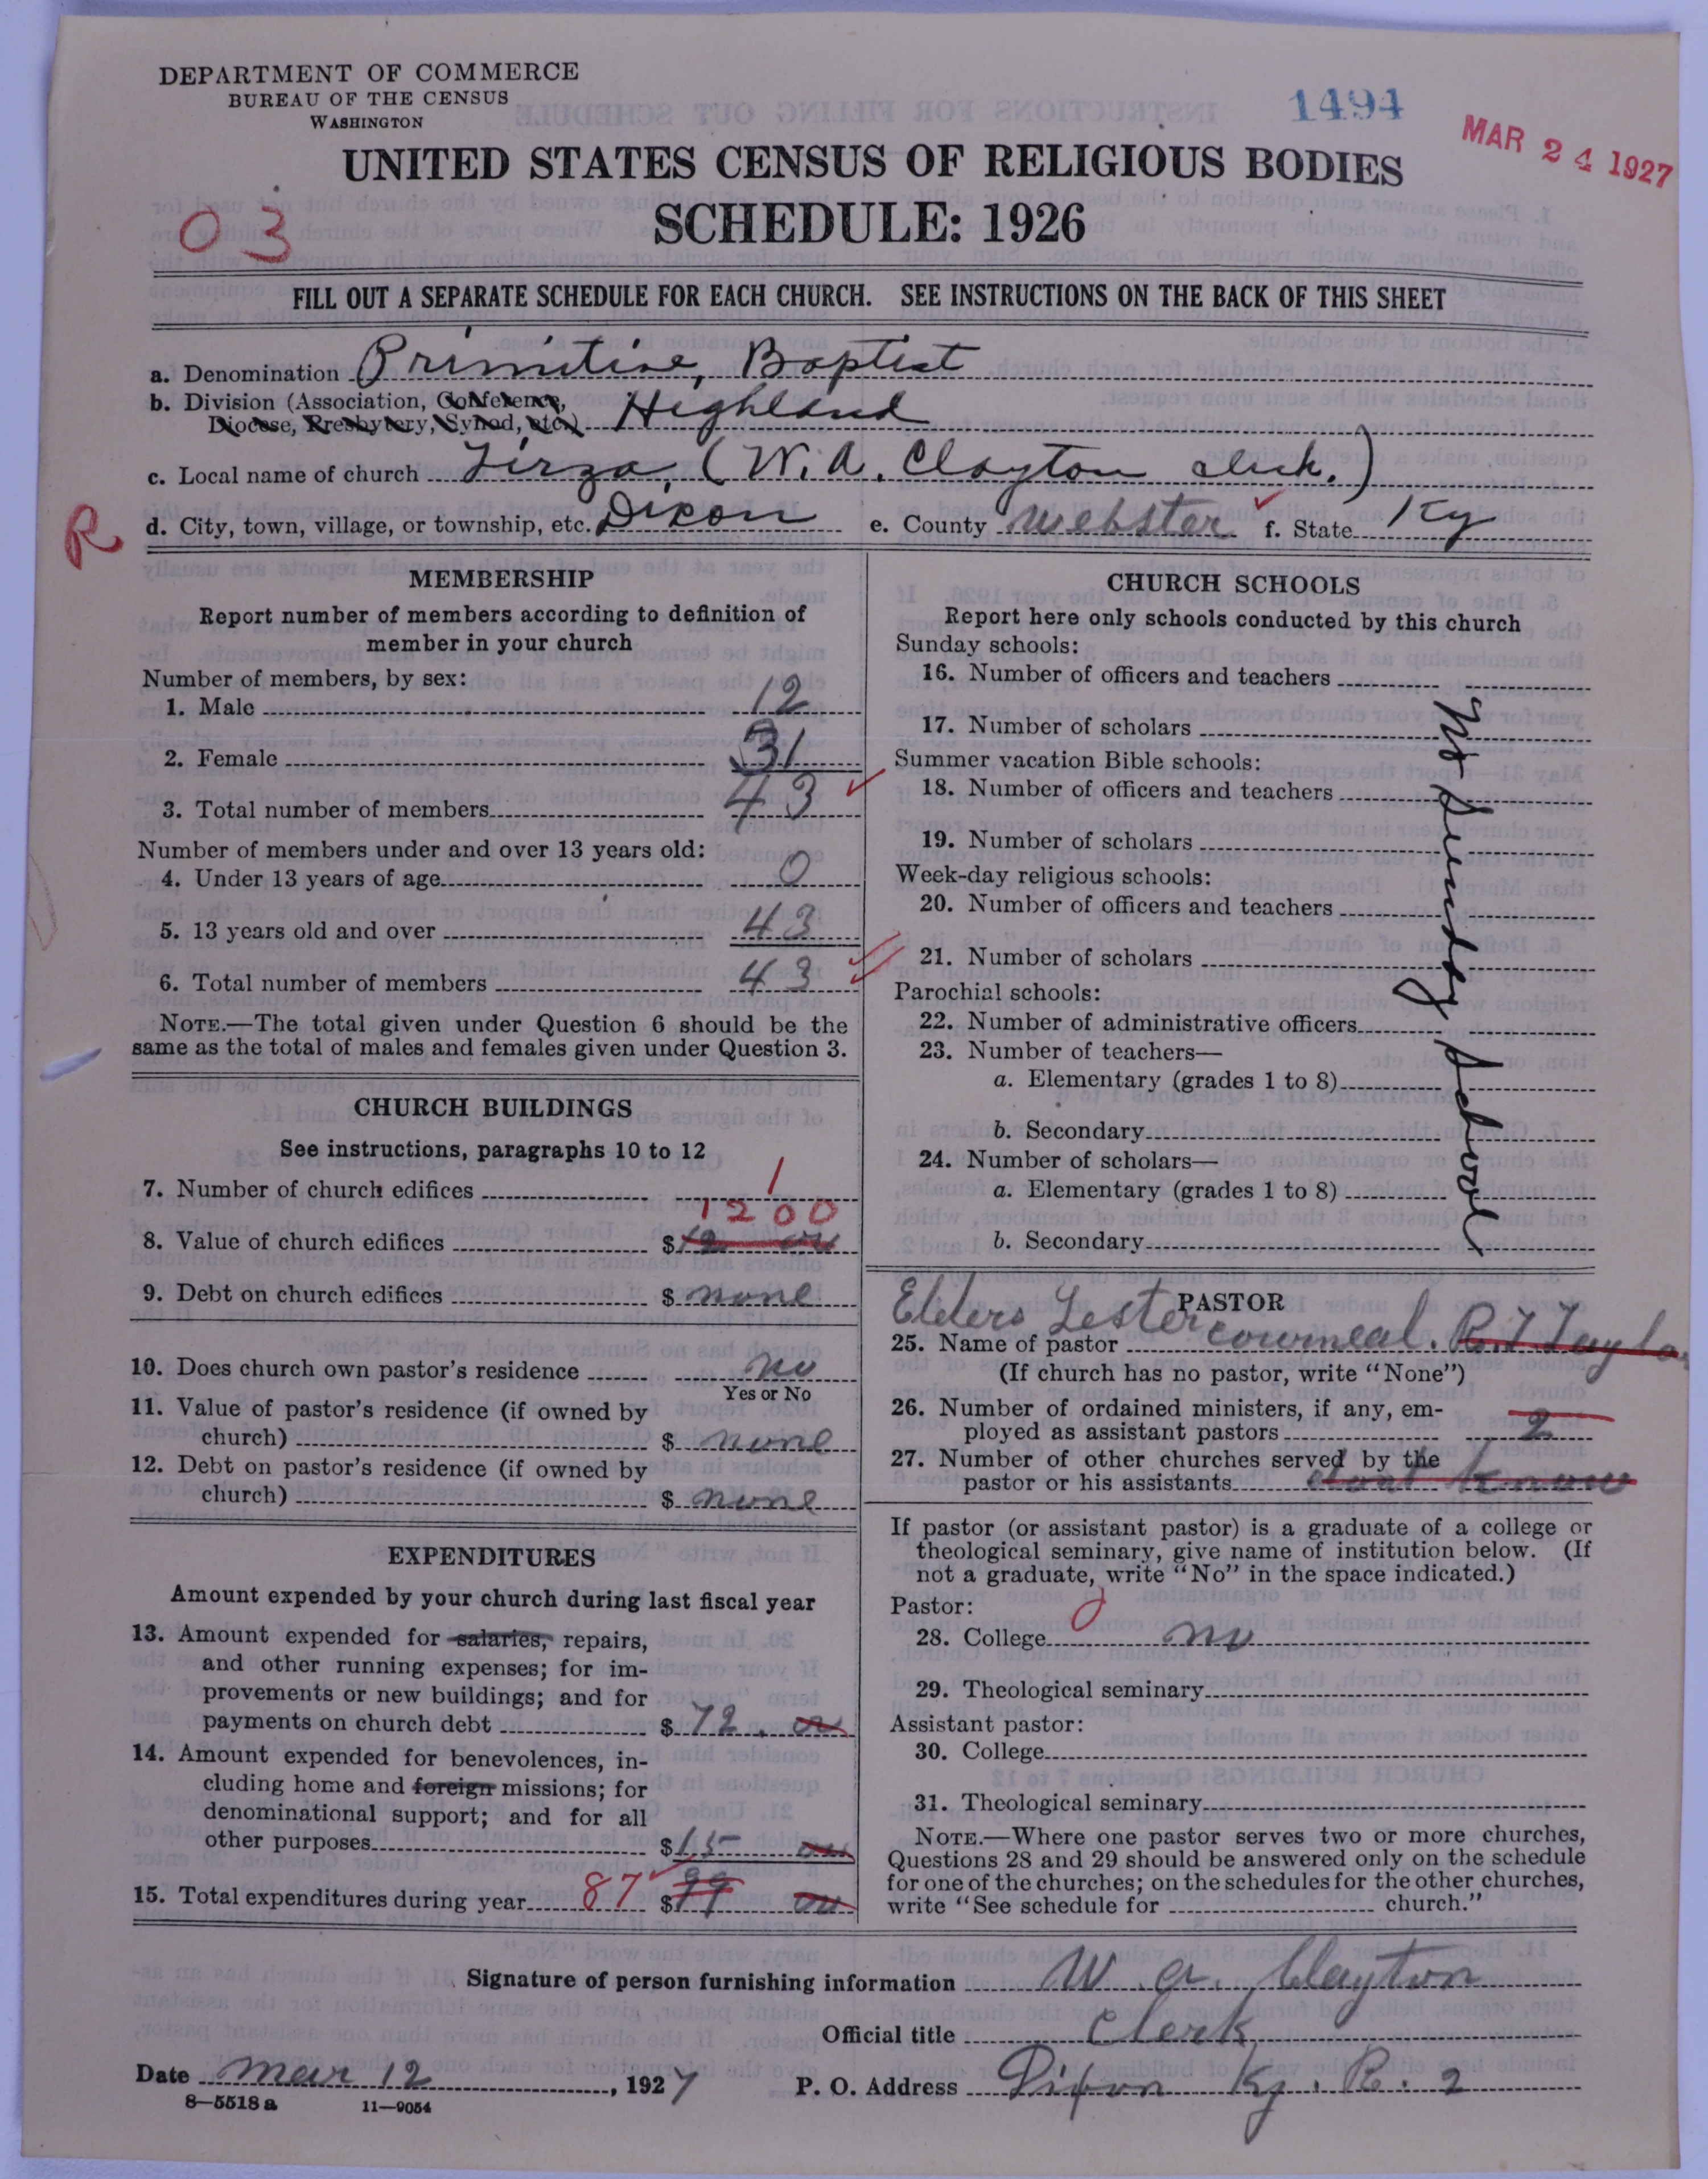 DEPARTMENT OF COMMERCE
BUREAU OF THE CENSUS
WASHINGTON
1494
MAR 24 1927
UNITED STATES CENSUS OF RELIGIOUS BODIES
SCHEDULE: 1926
03
FILL OUT A SEPARATE SCHEDULE FOR EACH CHURCH. SEE INSTRUCTIONS ON THE BACK OF THIS SHEET
a. Denomination Primitive, Baptist
b. Division (Association, Conference,
Diocese, Presbytery, Synod, etc.) Highland
c. Local name of church Tirza (W. A. Clayton clerk.)
R
d. City, town, village, or township, etc. Dixon e. County Webster f. State Ky
MEMBERSHIP
Report number of members according to definition of
member in your church
Number of members, by sex:
1. Male 12
2. Female 31
3. Total number of members 43
Number of members under and over 13 years old:
4. Under 13 years of age 0
5. 13 years old and over 43
6. Total number of members 43
NOTE.—The total given under Question 6 should be the
same as the total of males and females given under Question 3.
CHURCH BUILDINGS
See instructions, paragraphs 10 to 12
7. Number of church edifices 1
1200
8. Value of church edifices $ 12
9. Debt on church edifices $ none
10. Does church own pastor's residence no
Yes or No
11. Value of pastor's residence (if owned by
church) $ none
12. Debt on pastor's residence (if owned by
church) $ none
EXPENDITURES
Amount expended by your church during last fiscal year
13. Amount expended for salaries, repairs,
and other running expenses; for im-
provements or new buildings; and for
payments on church debt $ 72.
14. Amount expended for benevolences, in-
cluding home and foreign missions; for
denominational support; and for all
other purposes $ 15
15. Total expenditures during year 87 $
CHURCH SCHOOLS
Report here only schools conducted by this church
Sunday schools:
16. Number of officers and teachers
17. Number of scholars
Summer vacation Bible schools:
18. Number of officers and teachers
19. Number of scholars
Week-day religious schools:
20. Number of officers and teachers
21. Number of scholars
Parochial schools:
22. Number of administrative officers
23. Number of teachers—
a. Elementary (grades 1 to 8)
b. Secondary
24. Number of scholars—
a. Elementary (grades 1 to 8)
b. Secondary
No Sunday School
PASTOR
Elders Lester
25. Name of pastor cowmeal. R. T. Taylo
(If church has no pastor, write "None")
26. Number of ordained ministers, if any, em-
ployed as assistant pastors 2
27. Number of other churches served by the
pastor or his assistants dont know
If pastor (or assistant pastor) is a graduate of a college or
theological seminary, give name of institution below. (If
not a graduate, write "No" in the space indicated.)
Pastor:
28. College no
29. Theological seminary
Assistant pastor:
30. College
31. Theological seminary
NOTE.—Where one pastor serves two or more churches,
Questions 28 and 29 should be answered only on the schedule
for one of the churches; on the schedules for the other churches,
write "See schedule for church."
Signature of person furnishing information W. A. Clayton
Official title Clerk
Date Mar 12, 1927 P. O. Address Dixon Ky. R. 2
8—5518 a 11—9054